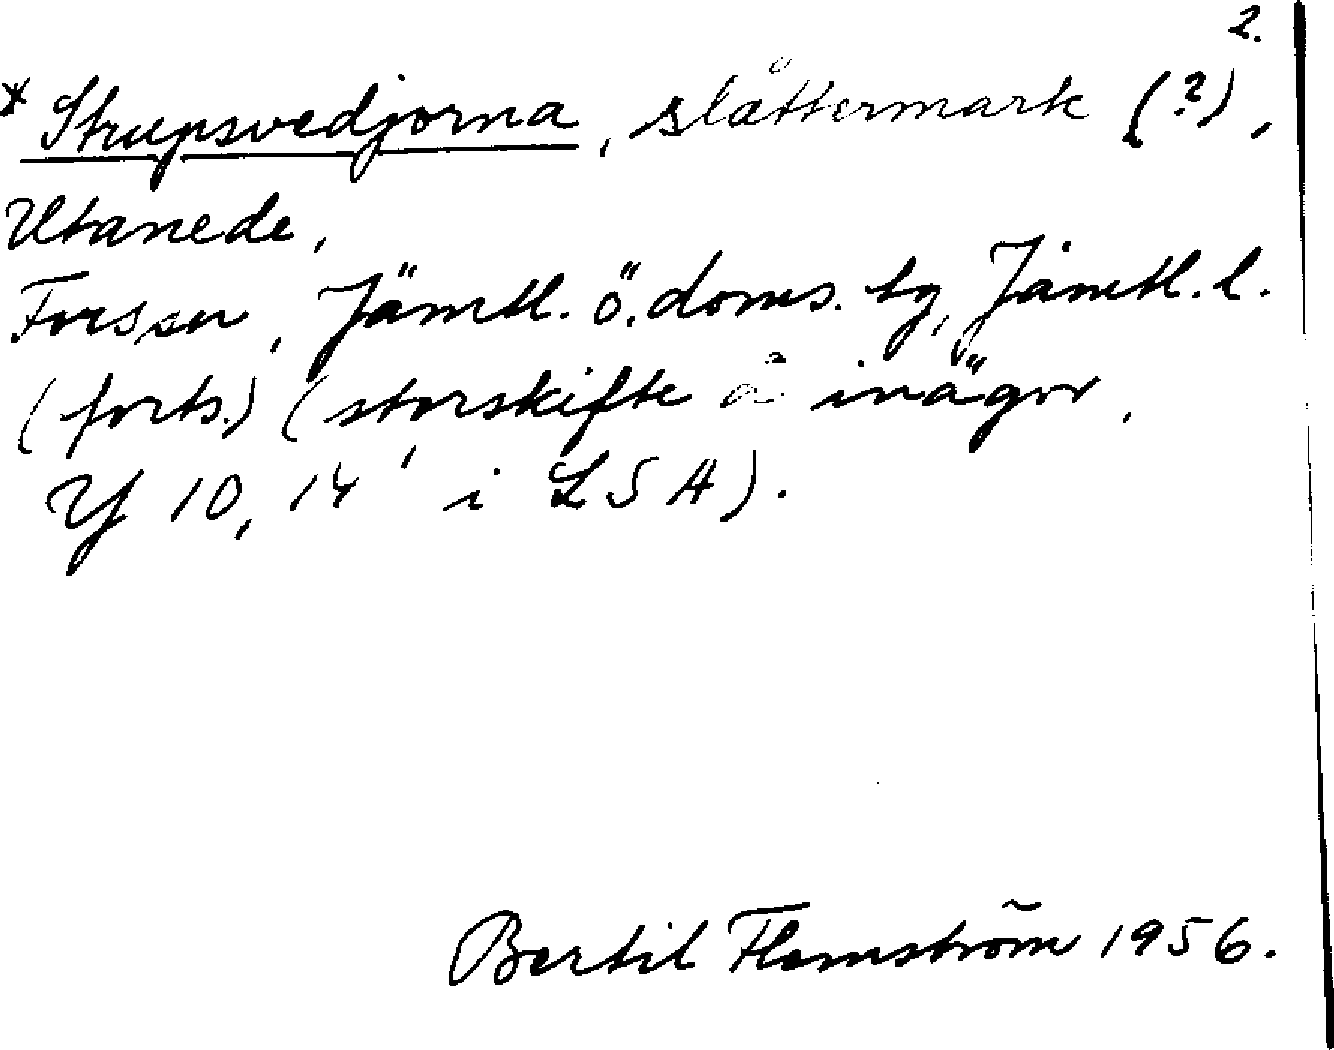 2.
* Strupsvedjorna, slåttermark (?),
Utanede,
Forssn, Jämtl. ö. doms. bg, Jämtl. l.
(forts.) (storskifte å inägor,
Y 10, 14 i LSA).
Bertil Flemström 1956.